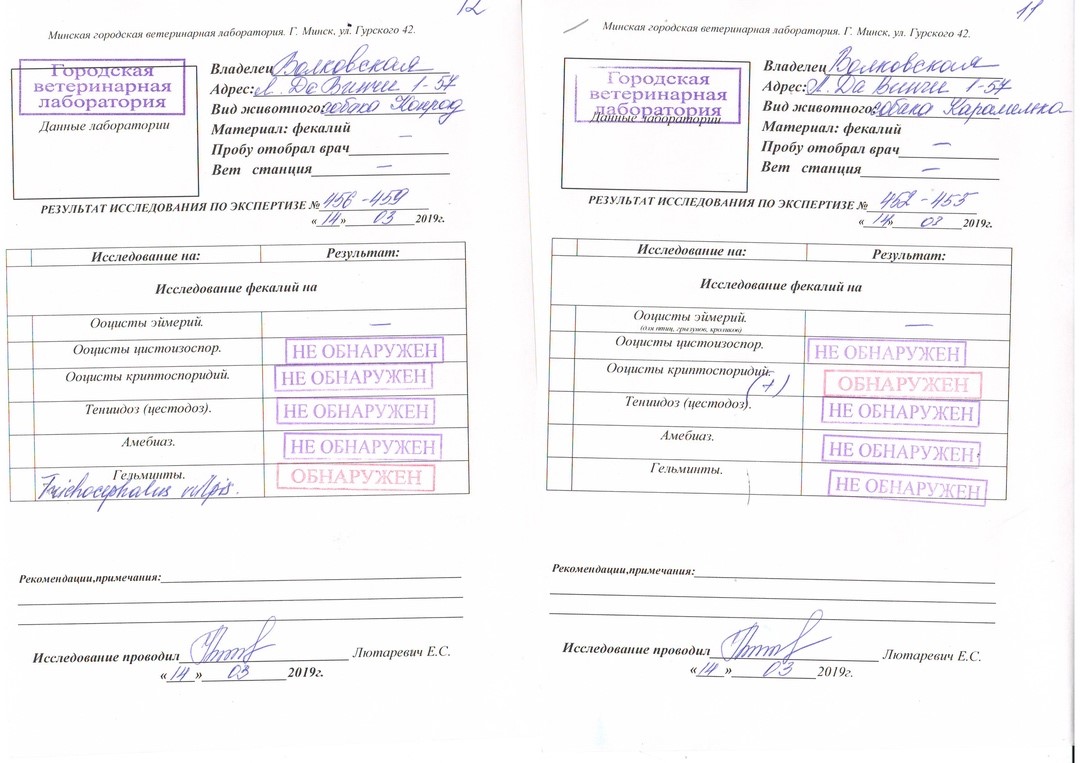 12
Минская городская ветеринарная лаборатория. Г. Минск, ул. Гурского 42.
Городская
ветеринарная
лаборатория
Данные лаборатории
Владелец Волковская
Адрес: Л. Да Винчи 1-57
Вид животного: собака Конрад
Материал: фекалий —
Пробу отобрал врач
Вет станция —
РЕЗУЛЬТАТ ИССЛЕДОВАНИЯ ПО ЭКСПЕРТИЗЕ № 456-459
«14» 03 2019г.
Исследование на: Результат:
Исследование фекалий на
Ооцисты эймерий. —
Ооцисты цистоизоспор. НЕ ОБНАРУЖЕН
Ооцисты криптоспоридий. НЕ ОБНАРУЖЕН
Тениидоз (цестодоз). НЕ ОБНАРУЖЕН
Амебиаз. НЕ ОБНАРУЖЕН
Гельминты. ОБНАРУЖЕН
Trichocephalus vulpis.
Рекомендации,примечания:
Исследование проводил Лютаревич Е.С.
«14» 03 2019г.
11
Минская городская ветеринарная лаборатория. Г. Минск, ул. Гурского 42.
Городская
ветеринарная
лаборатория
Данные лаборатории
Владелец Волковская
Адрес: Л. Да Винчи 1-57
Вид животного: собака Карамелька
Материал: фекалий
Пробу отобрал врач —
Вет станция —
РЕЗУЛЬТАТ ИССЛЕДОВАНИЯ ПО ЭКСПЕРТИЗЕ № 452-455
«14» 03 2019г.
Исследование на: Результат:
Исследование фекалий на
Ооцисты эймерий. —
(для птиц, грызунов, кроликов)
Ооцисты цистоизоспор. НЕ ОБНАРУЖЕН
Ооцисты криптоспоридий. (+) ОБНАРУЖЕН
Тениидоз (цестодоз). НЕ ОБНАРУЖЕН
Амебиаз. НЕ ОБНАРУЖЕН
Гельминты. НЕ ОБНАРУЖЕН
Рекомендации,примечания:
Исследование проводил Лютаревич Е.С.
«14» 03 2019г.